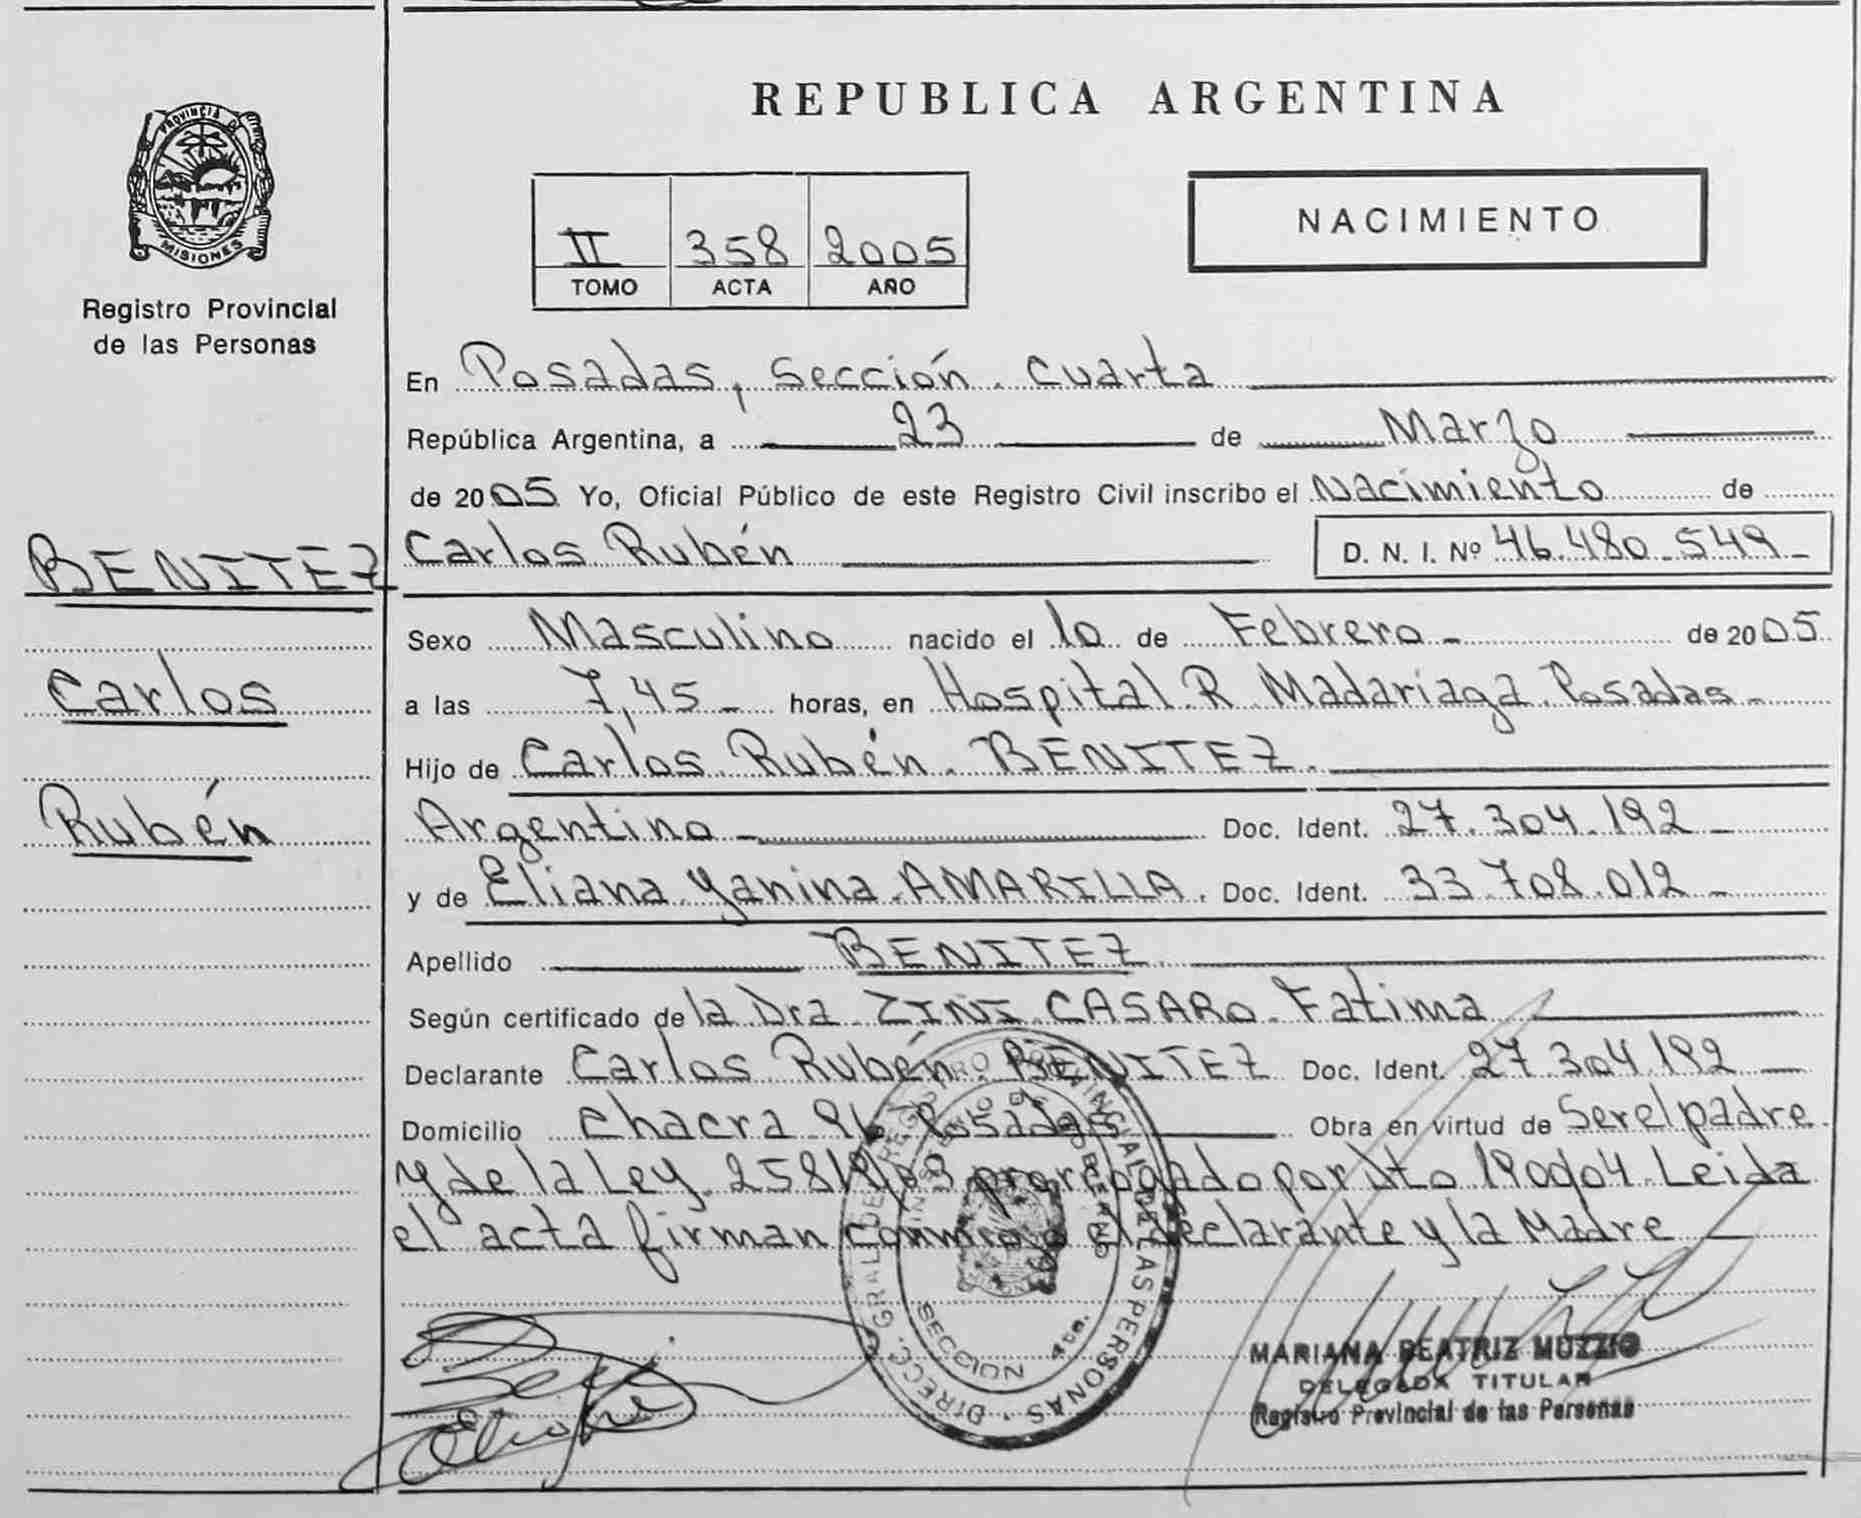 PROVINCIA DE
MISIONES
Registro Provincial
de las Personas
BENITEZ
Carlos
Rubén
REPUBLICA ARGENTINA
II 358 2005
TOMO ACTA AÑO
NACIMIENTO
En Posadas, Sección Cuarta
República Argentina, a 23 de Marzo
de 2005 Yo, Oficial Público de este Registro Civil inscribo el Nacimiento de
Carlos Rubén D. N. I. Nº 46.480.549
Sexo Masculino nacido el 10 de Febrero de 2005
a las 7,45 horas, en Hospital R Madariaga Posadas
Hijo de Carlos Rubén BENITEZ
Argentino Doc. Ident. 27.304.192
y de Eliana Yanina AMARILLA. Doc. Ident. 33.708.012
Apellido BENITEZ
Según certificado de la Dra ZINI CASARO Fatima
Declarante Carlos Rubén BENITEZ Doc. Ident. 27 304.192
Domicilio Chacra 96 Posadas Obra en virtud de Ser el padre
y de la Ley 25819/03 prorrogado por Dto 1900/04. Leida
el acta firman conmigo el declarante y la Madre
DIREC. GRAL. DEL REGISTRO PROVINCIAL DE LAS PERSONAS
MINISTERIO DE GOBIERNO
SECCION 4ta.
MARIANA BEATRIZ MUZZIO
DELEGADA TITULAR
Registro Provincial de las Personas